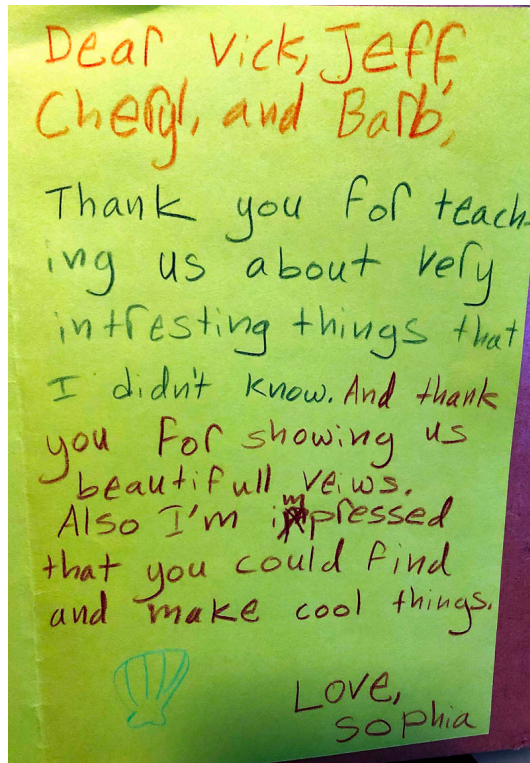 Dear Vick, Jeff,
Cheryl, and Barb,
Thank you for teach-
ing us about very
intresting things that
I didn't know. And thank
you for showing us
beautifull veiws.
Also I'm impressed
that you could find
and make cool things.
Love,
Sophia